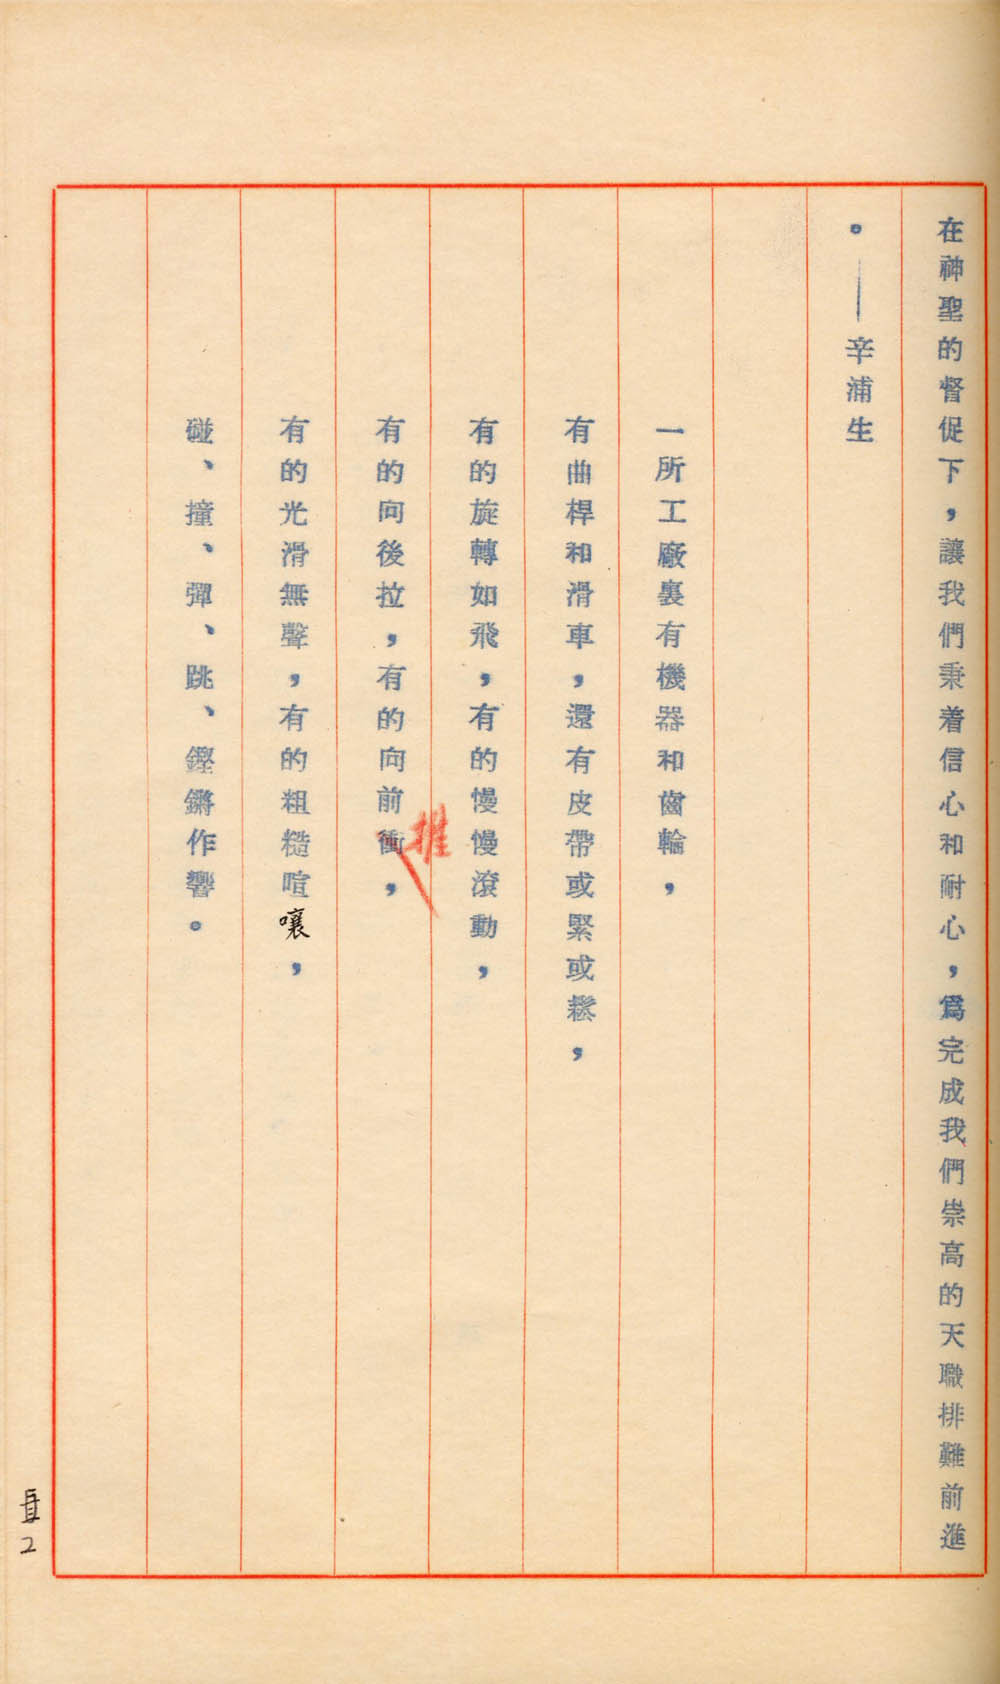 在神聖的督促下，讓我們秉着信心和耐心，爲完成我們崇高的天職排難前進
。——辛浦生
一所工廠裏有機器和齒輪，
有曲桿和滑車，還有皮帶或緊或鬆，
有的旋轉如飛，有的慢慢滾動，
有的向後拉，有的向前衝，
推
有的光滑無聲，有的粗糙喧嚷，
碰、撞、彈、跳、鏗鏘作響。
頁2